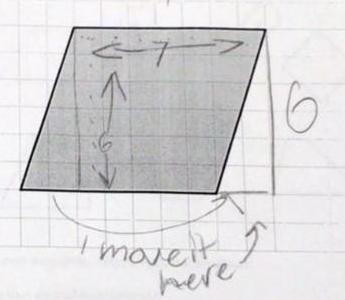 7
6
6
i move it
here